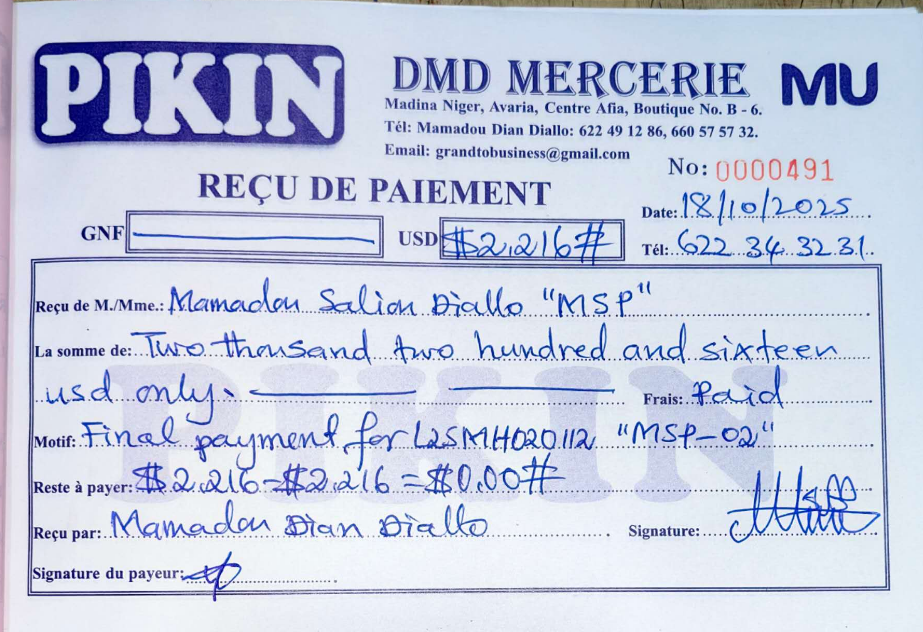 PIKIN
DMD MERCERIE MU
Madina Niger, Avaria, Centre Afia, Boutique No. B - 6.
Tél: Mamadou Dian Diallo: 622 49 12 86, 660 57 57 32.
Email: grandtobusiness@gmail.com
No: 0000491
REÇU DE PAIEMENT
Date: 18/10/2025
GNF USD $2.216#
Tél: 622 34 32 31
Reçu de M./Mme.: Mamadou Saliou Diallo "MSP"
La somme de: Two thousand two hundred and sixteen
usd only. Frais: Paid
Motif: Final payment for L25MH020112 "MSP-02"
Reste à payer: $2.216-$2.216=$0.00#
Reçu par: Mamadou Dian Diallo Signature:
Signature du payeur:
PIKIN